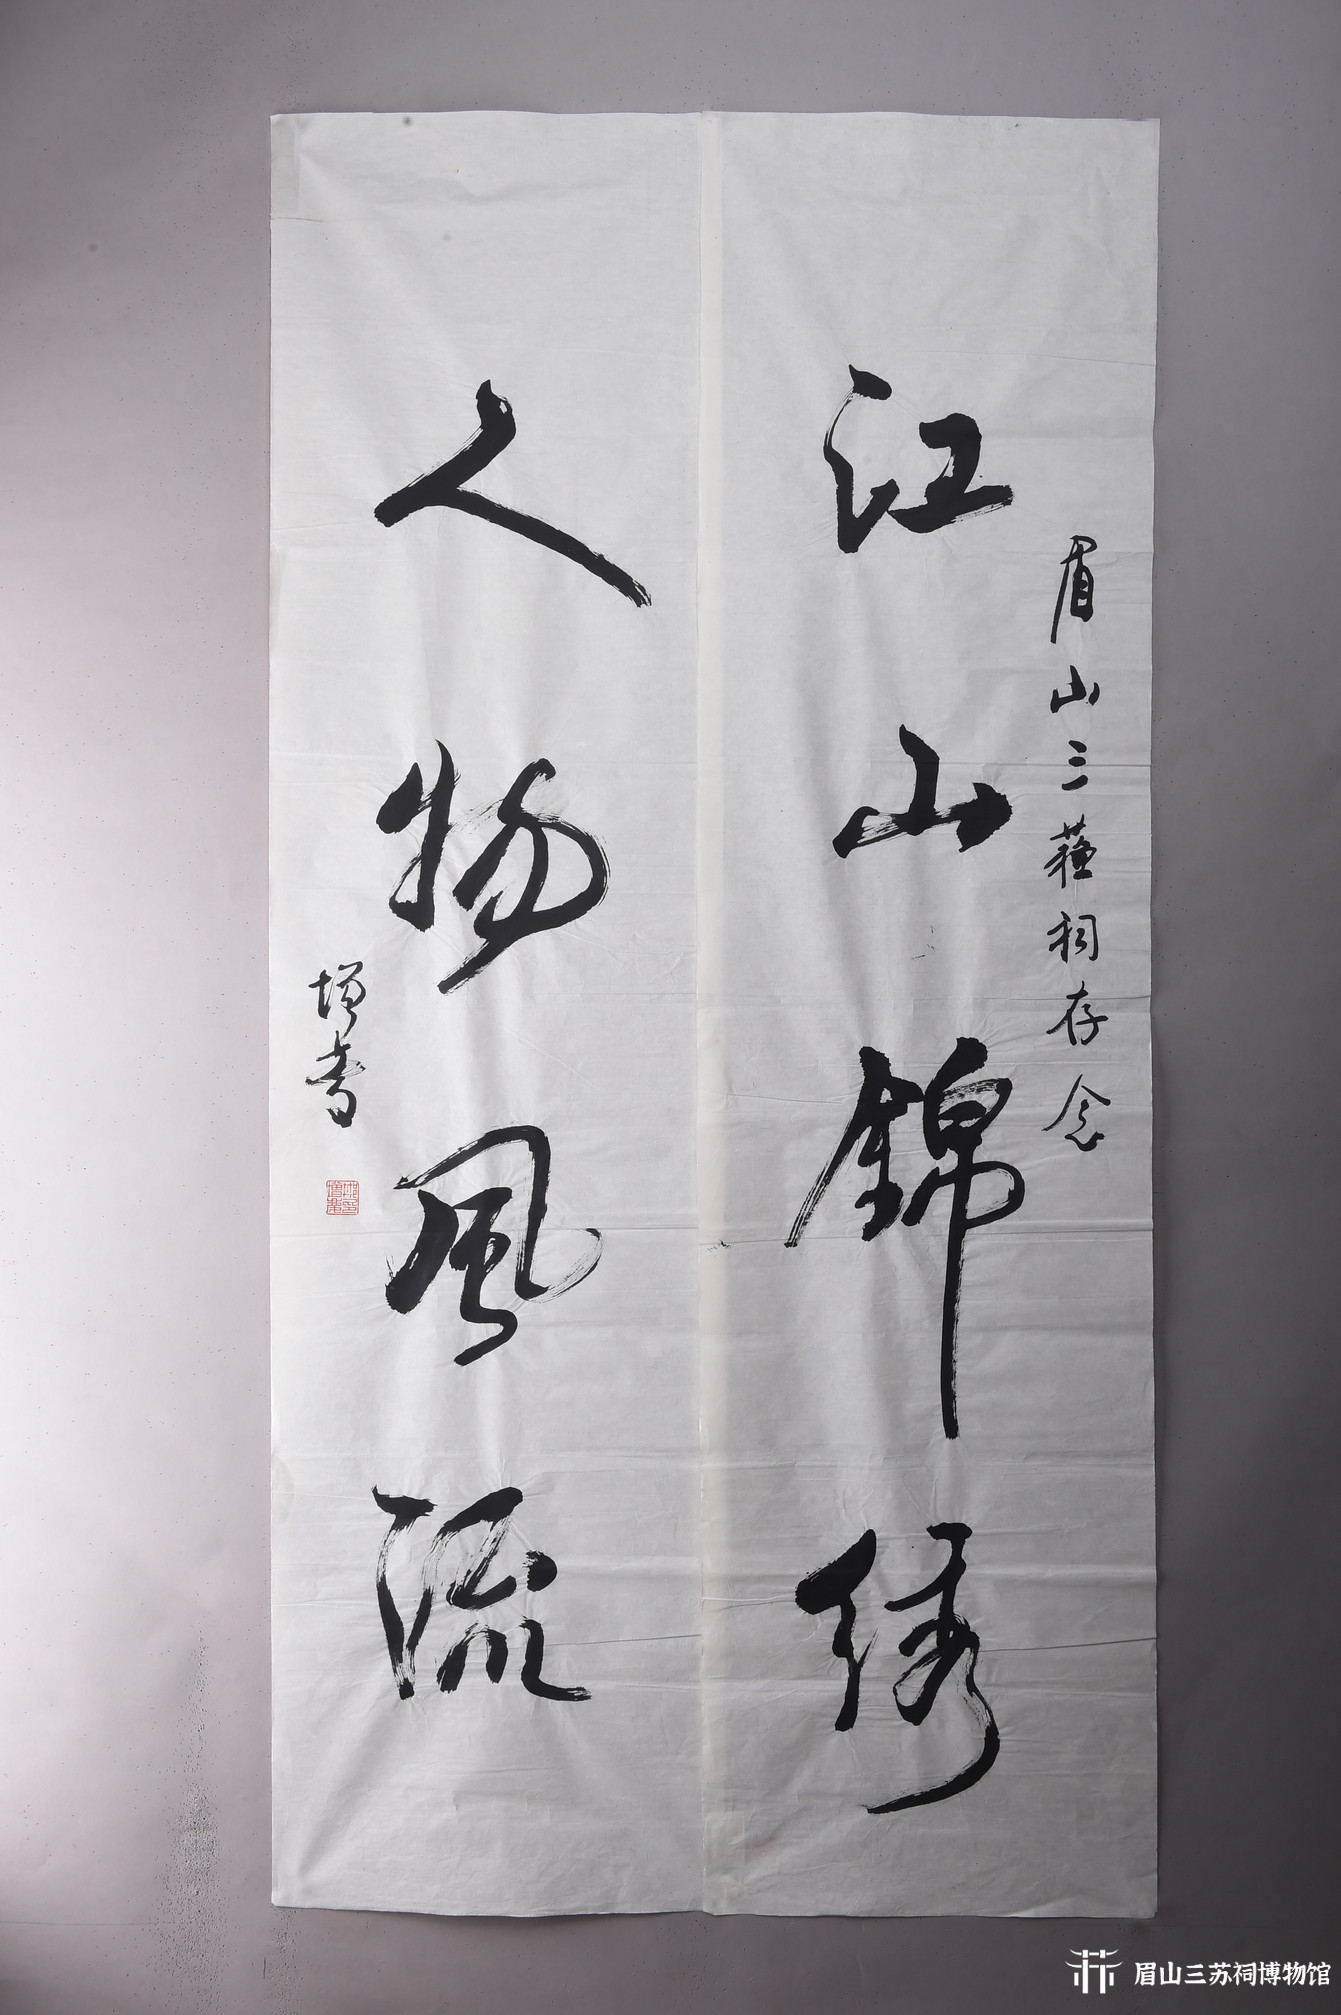 眉山三蘇祠存念
江山錦绣
人物風流
增書
眉山三苏祠博物馆